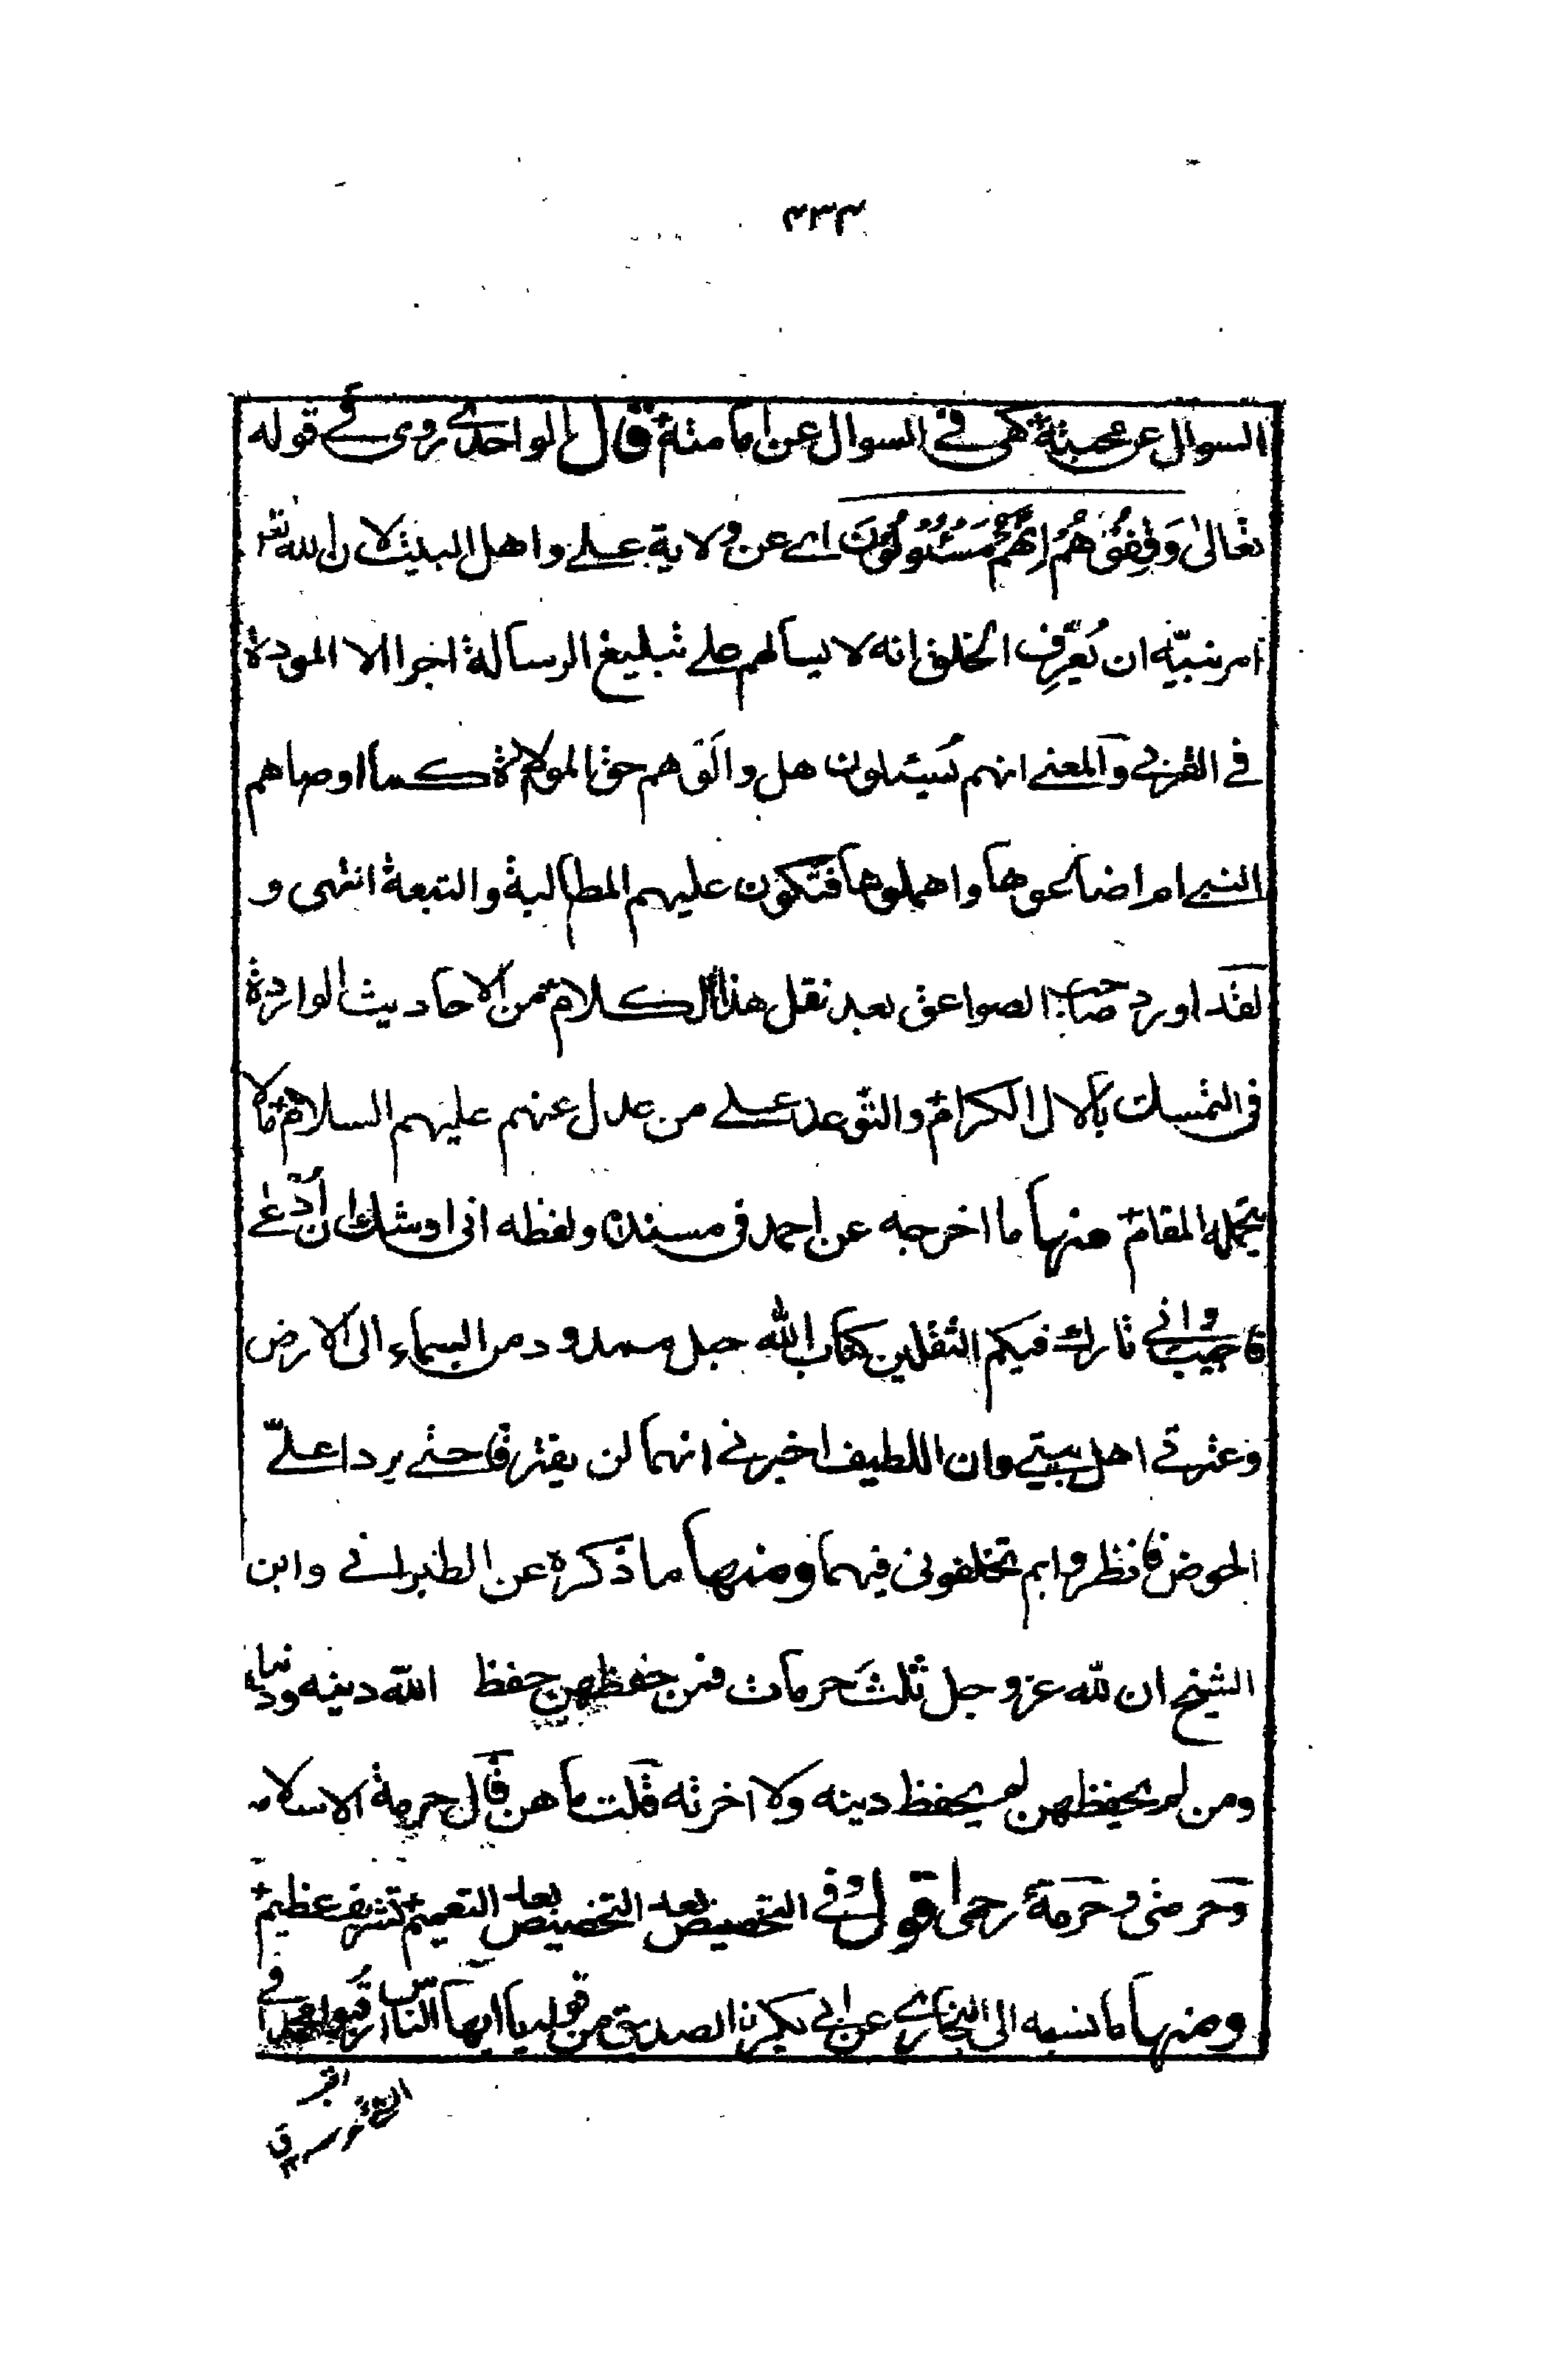 ٤٣٣
السوال عن محبته هي في السوال عن امامته قال الواحدي روى في قوله
تعالى وَقِفُوْهُمْ اِنَّهُمْ مَسْئُوْلُوْنَ اي عن ولاية علي واهل البيت لان الله
امر نبيّه ان يُعَرِّف الخلق انه لا يسالهم على تبليغ الرسالة اجرا الا المودة
في القربى والمعنى انهم يُسئلون هل والَوهم حق الموالاة كما اوصاهم
النبي ام اضاعوها واهملوها فتكون عليهم المطالبة والتبعة انتهى و
لقد اورد صاحب الصواعق بعد نقل هذا الكلام من الاحاديث الواردة
في التمسك بالال الكرام والتوعد على من عدل عنهم عليهم السلام ما لا
يتحمله المقام منها ما اخرجه عن احمد في مسنده ولفظه اني اوشك ان اُدعى
فاجيب واني تارك فيكم الثقلين كتاب الله حبل ممدود من السماء الى الارض
وعترتي اهل بيتي وان اللطيف اخبرني انهما لن يفترقا حتى يردا عليّ
الحوض فانظروا بم تخلفوني فيهما ومنها ما ذكره عن الطبراني وابن
الشيخ ان لله عز وجل ثلث حرمات فمن حفظهن حفظ الله دينه ودنياه
ومن لم يحفظهن لم يحفظ دينه ولا اخرته قلت ما هن قال حرمة الاسلام
وحرمتي وحرمة رحمي اقول وفي التخصيص بعد التخصيص بعد التعميم تشريف عظيم
ومنها ما نسبه الى البخاري عن ابي بكرنا الصديق من قوله يا ايها الناس ارقبوا محمدا في